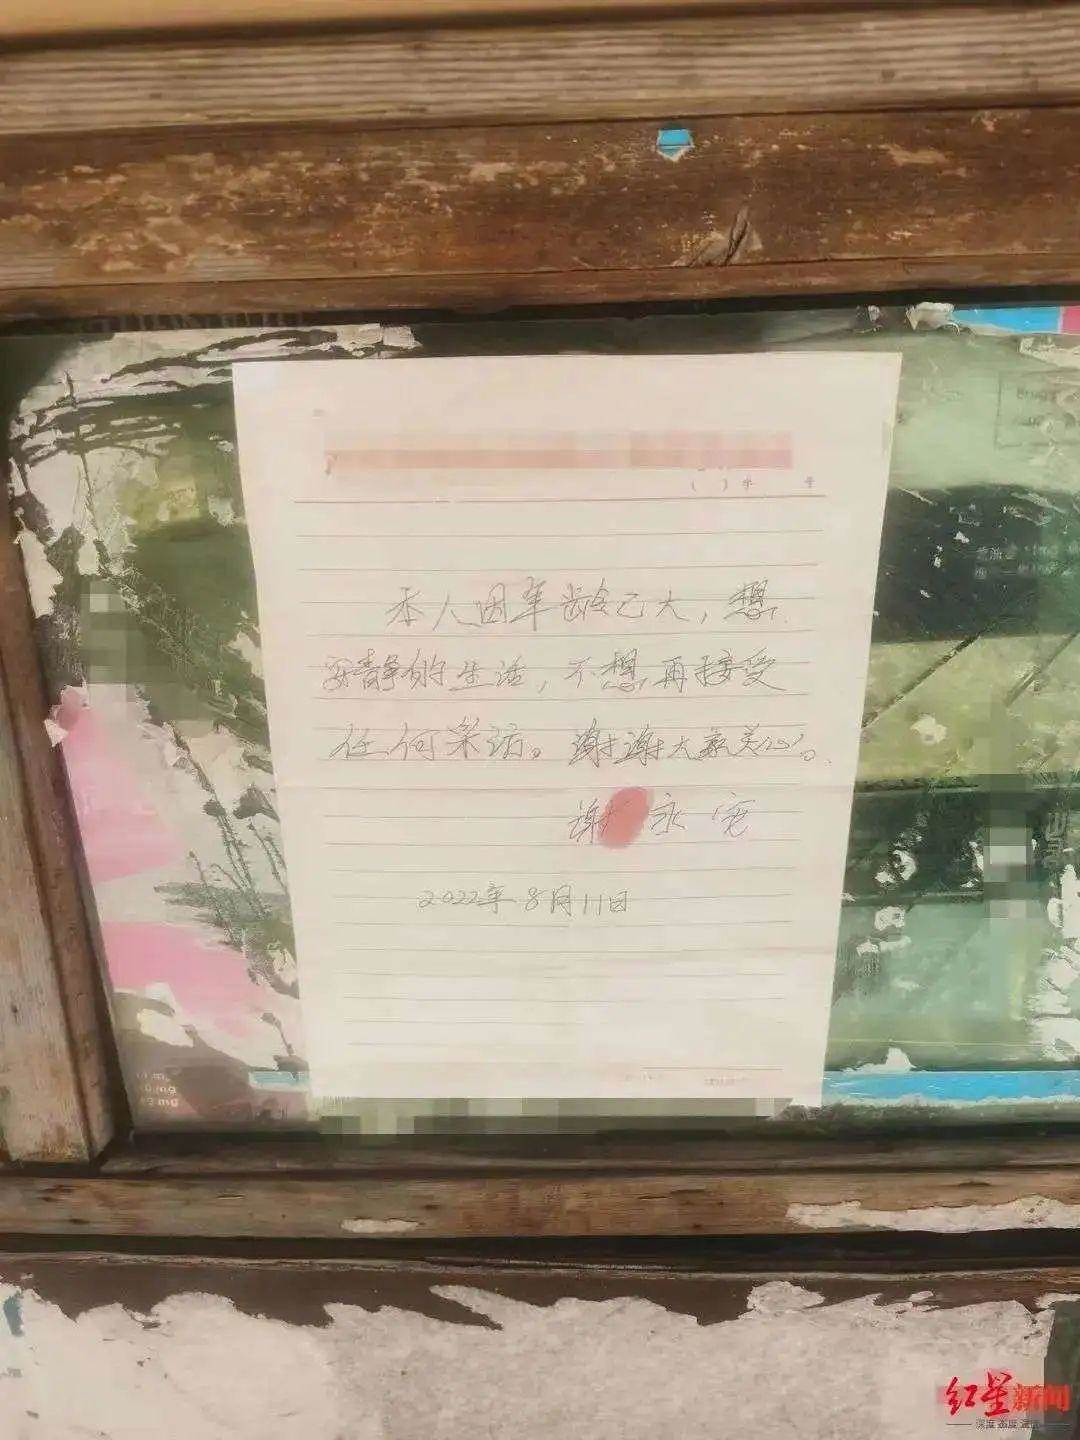 ( ) 字 号
本人因年龄己大，想
安静的生活，不想再接受
任何采访。谢谢大家关心。
谢永宽
2022年8月11日
mg
mg
红星新闻
深度 态度 温度